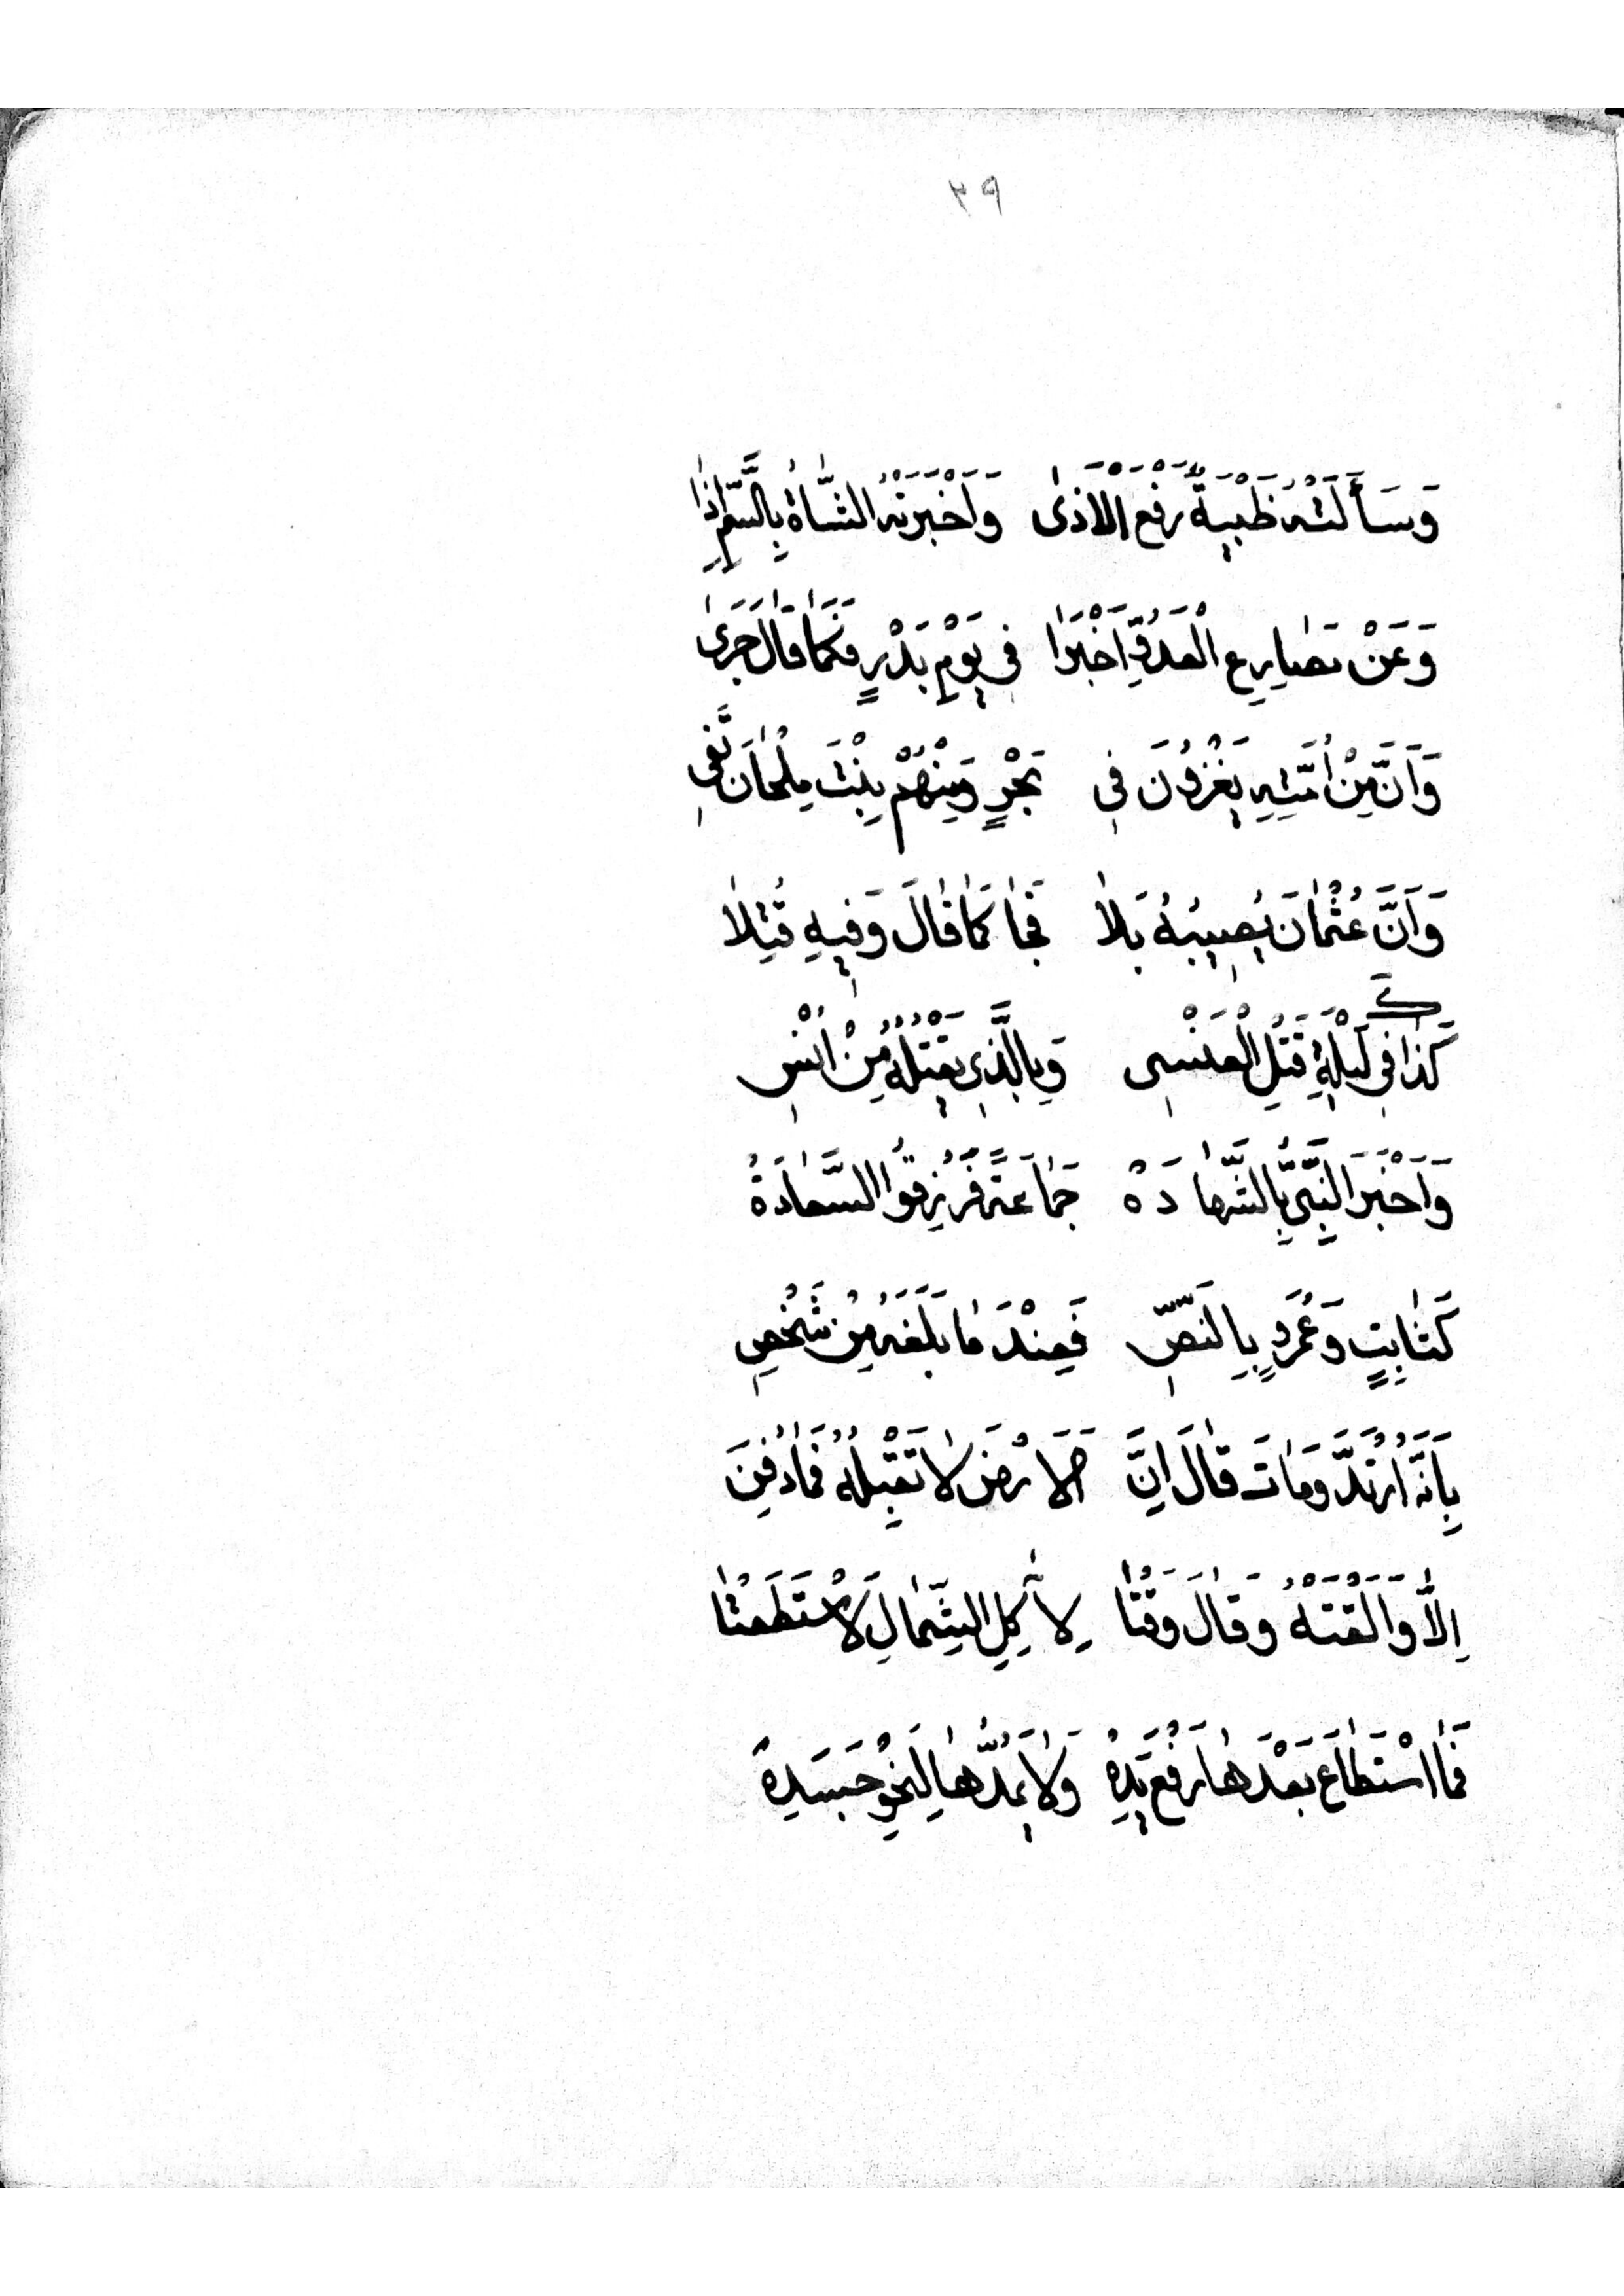 ٢٩
وَسَأَلَتْهُ ظَبْيَةٌ رَفْعَ الْاَذىٰ وَاَخْبَرَتْهُ الشَّاةُ بِالسَّمِّ اِذَا
وَعَنْ مَصَارِعِ الْعَدُوِّ اَخْبَرَا فِى يَوْمِ بَدْرٍ فَكَمَا قَالَ جَرىٰ
وَاَنَّ مِنْ اُمَّتِهِ يَغْزُونَ فِى بَحْرٍ وَمِنْهُمْ بِنْتَ مِلْحَانَ تَّفِى
وَاَنَّ عُثْمَانَ يُصِيبُهُ بَلاٰ فَجَا كَمَا قَالَ وَفِيهِ قُتِلاٰ
كَذَا فِى لَيْلَةِ قَتْلِ الْعَنْسِى وَبِالَّذِى يَقْتُلُهُ مِنْ اُنْسِ
وَاَخْبَرَ النَّبِىُّ بِالشَّهَادَهْ جَمَاعَةً فَرُزِقُوا السَّعَادَةُ
كَثَابِتٍ وَعُمَرٍو بِالنَّصِّ فَعِنْدَمَا بَلَغَهُ مِنْ شَخْصِ
بِاَنَّهُ ارْتَدَّ وَمَاتَ قَالَ اِنَّ الْاَرْضَ لاَ تَقْبَلُهُ فَمَا دُفِنَ
اِلاَّ وَاَلْقَتْهُ وَقَالَ وَقْتَا لِآكِلِ الشِّمَالِ لَا اسْتَطَعْتَا
فَمَا اسْتَطَاعَ بَعْدَهَا رَفْعَ يَدِهْ وَلاَ يَمُدُّهَا لِنَحْوِ جَسَدِهْ